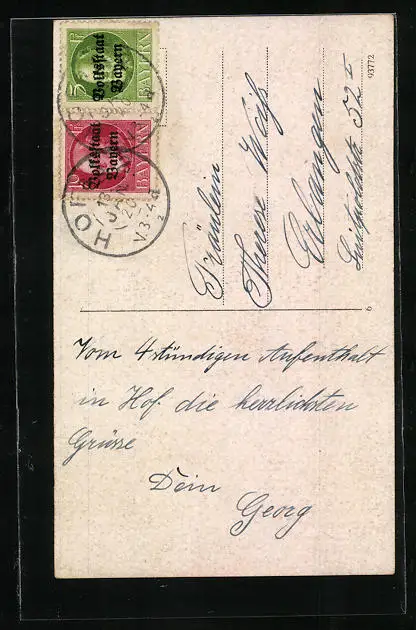 5 Pf
BAYERN
Volksstaat
Bayern
BAYERN
Volksstaat
Bayern
HOF
18 JAN
20
V.3-4
2
93772
Fräulein
Therese Weiß
Erlangen
Luitpoldstr. 52 I
6
Vom 4stündigen Aufenthalt
in Hof die herzlichsten
Grüsse
Dein
Georg